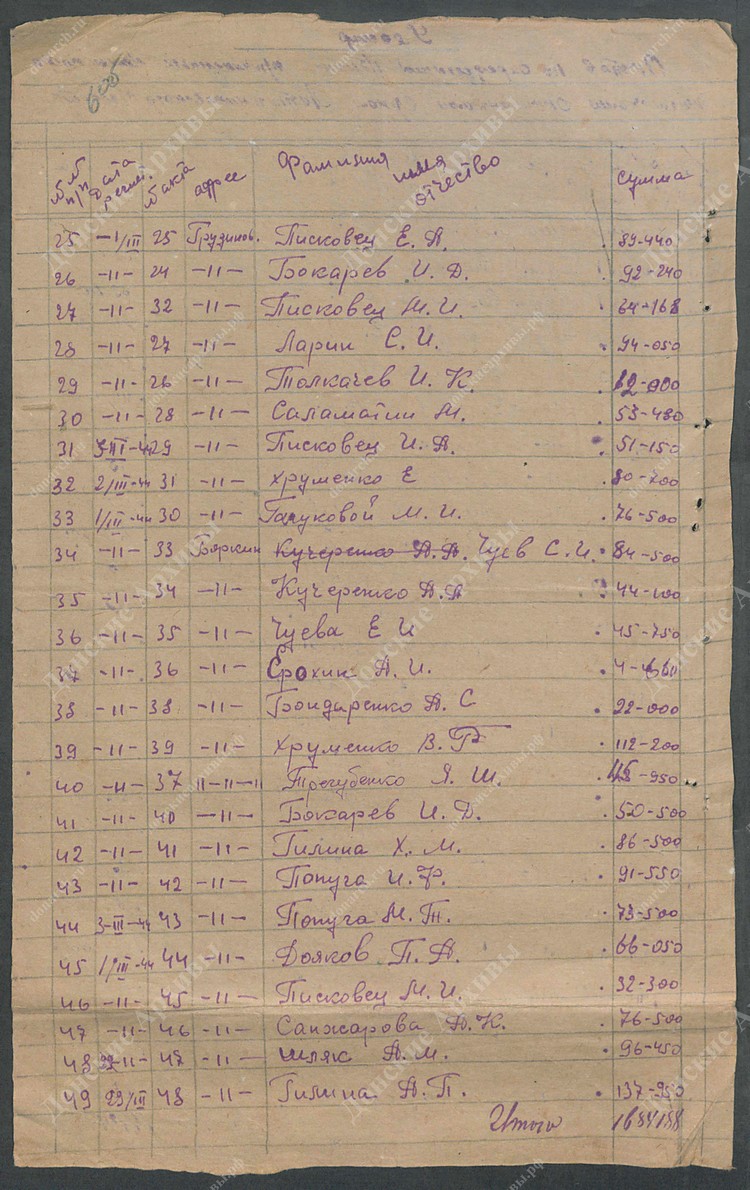 №№ п/п Дата №акта адрес Фамилия имя отчество Сумма
25 -1/III 25 Грузинов. Писковец Е. А. 89-440
26 -11- 24 -11- Бокарев И. Д. 92-240
27 -11- 32 -11- Писковец М. И. 64-168
28 -11- 27 -11- Ларин С. И. 94-050
29 -11- 26 -11- Толкачев И. К.
30 -11- 28 -11- Саламатин М. 53-480
31 3-III-44 29 -11- Писковец И. А. 51-150
32 2/III-44 31 -11- Хруменко Е 80-700
33 1/III-44 30 -11- М. И. 76-500
34 -11- 33 Кучеренко А. А. Чуев С. И. 84-500
35 -11- 34 -11- Кучеренко А. А
36 -11- 35 -11- Чуева Е И 45-750
37 -11- 36 -11- Ерохин А. И.
38 -11- 38 -11- Бондыренко А. С 22-000
39 -11- 39 -11- Хруменко В. Г 112-200
40 -11- 37 11-11-11 Трегубенко Я. Ш.
41 -11- 40 -11- Бокарев И. Д. 50-500
42 -11- 41 -11- Гилина Х. М. 86-500
43 -11- 42 -11- Попуга И. Ф. 91-550
44 3-III-44 43 -11- Попуга М. Т. 73-500
45 1/III-44 44 -11- Дояков П. А. 66-050
46 -11- 45 -11- Писковец М. И. 32-300
47 -11- 46 -11- Санжарова А. К. 76-500
48 29-11- 47 -11- Шляк А. М. 96-450
49 29/III 48 -11- Гилина А. П. 137-950
Итого 1684188